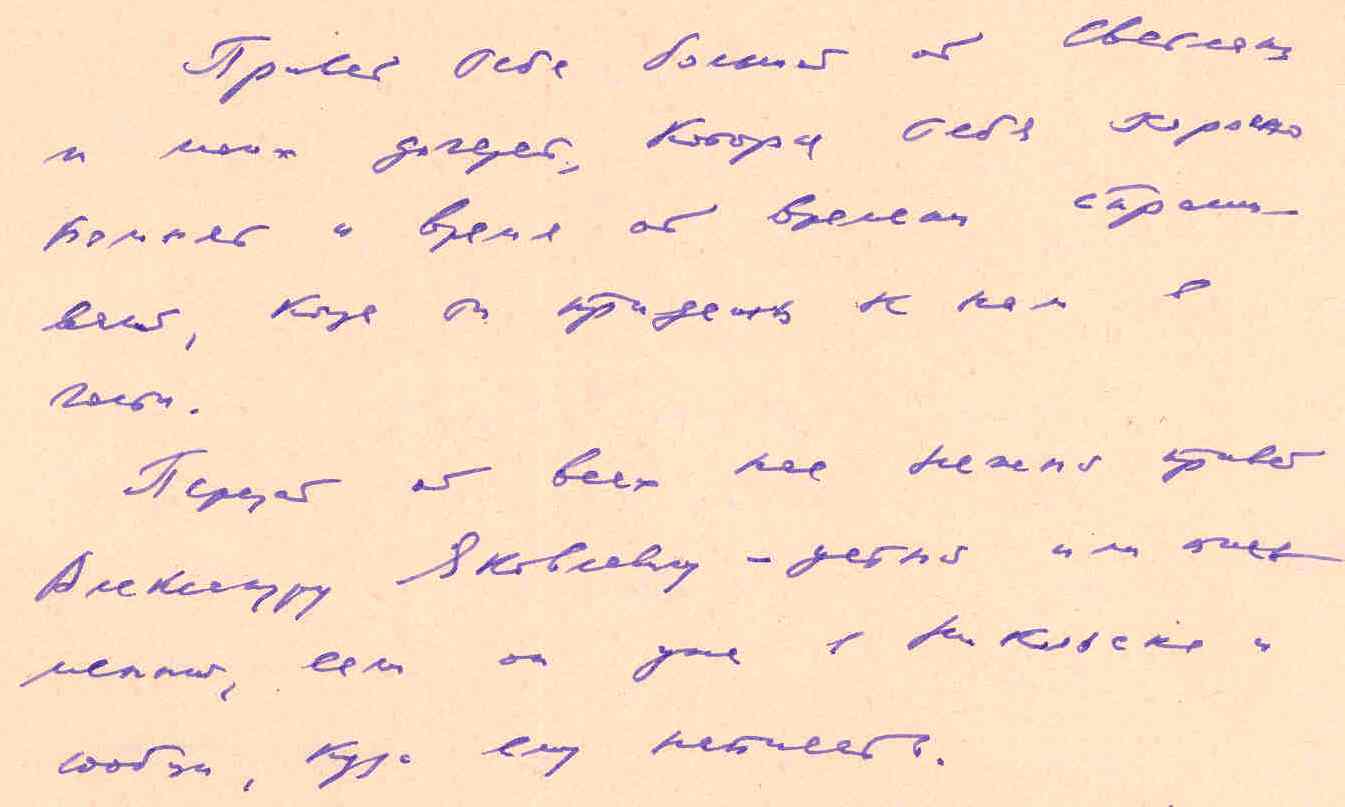 Привет тебе большой от Светланы
и моих дочерей, которые тебя хорошо
помнят и время от времени спраши-
вают, когда ты приедешь к нам в
гости.
Передай от всех нас нежный привет
Александру Яковлевичу – устно или пись-
менно, если он уже в Никольске и
сообщи, куда ему написать.